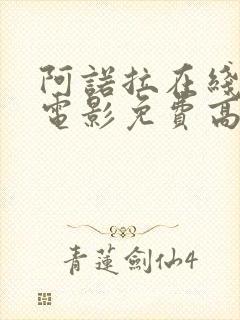 阿諾拉在綫
電影免費高
青蓮劍仙4